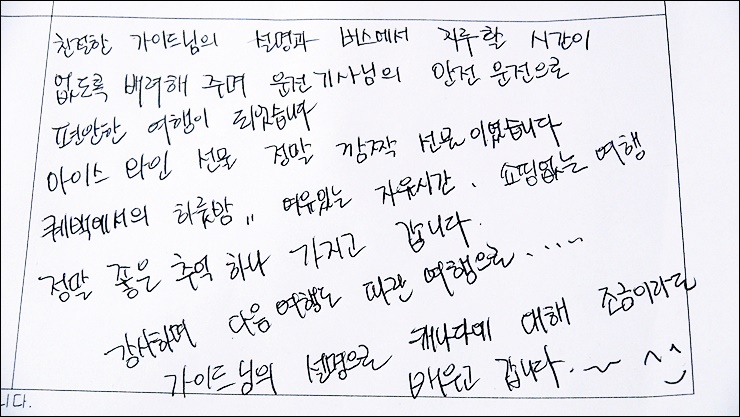 친절한 가이드님의 설명과 버스에서 지루할 시간이
없도록 배려해 주며 운전기사님의 안전 운전으로
편안한 여행이 되었습니다
아이스 와인 선물 정말 깜짝 선물이었습니다
퀘백에서의 하룻밤,, 여유있는 자유시간. 쇼핑없는 여행
정말 좋은 추억 하나 가지고 갑니다.
감사하며 다음여행도 파란 여행으로....~
가이드님의 설명으로 캐나다에 대해 조금이라도
배우고 갑니다.~ ^^
니다.